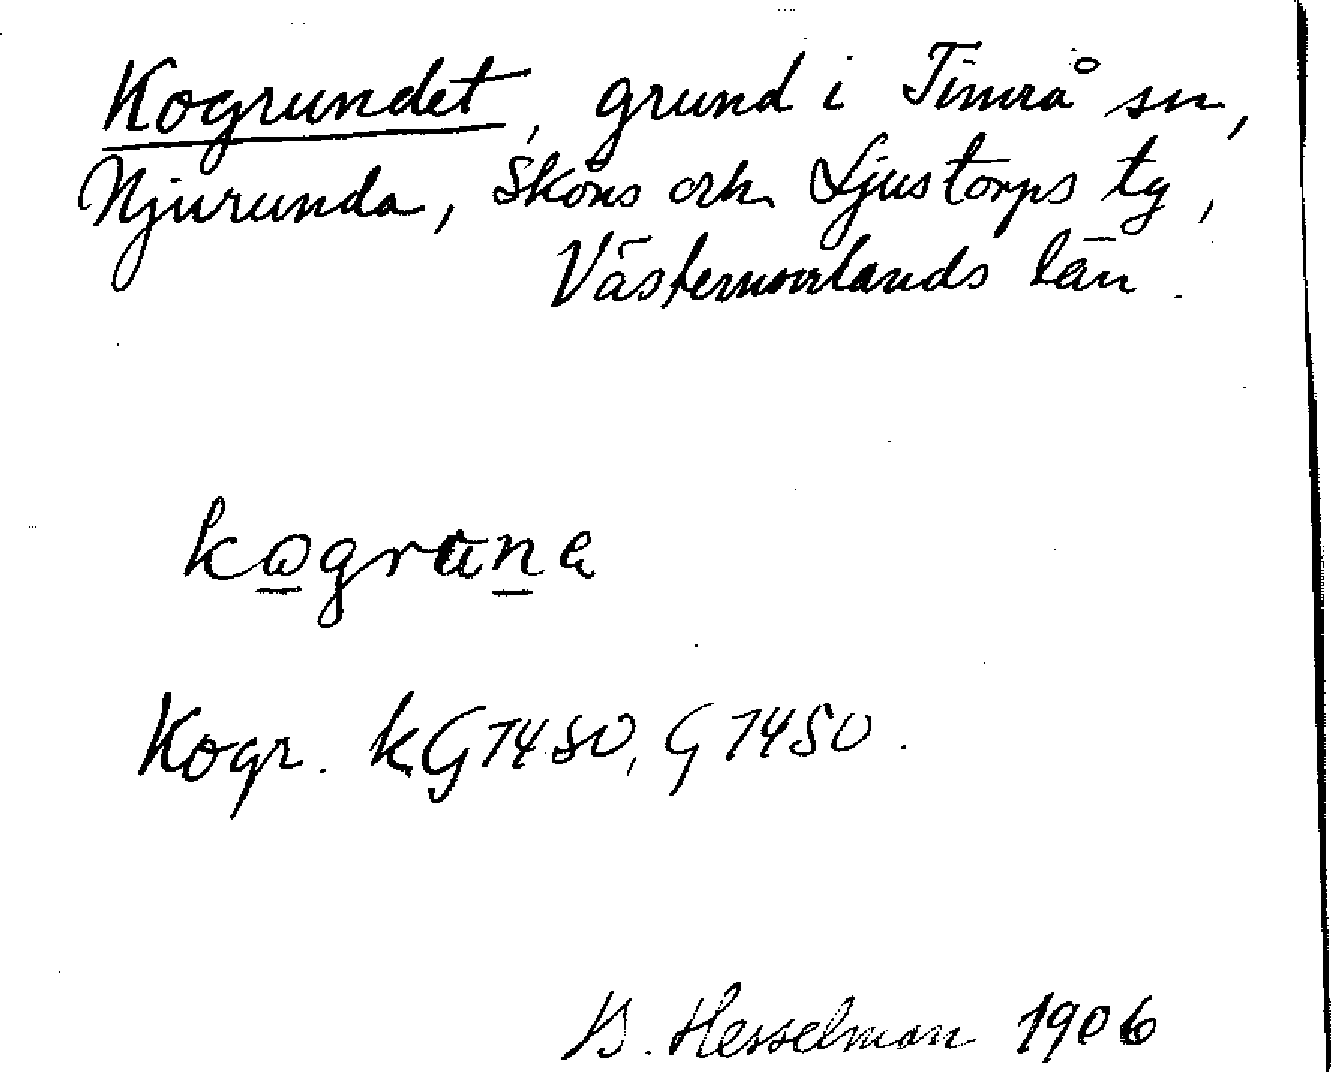 Kogrundet, grund i Timrå sn,
Njurunda, Sköns och Ljustorps tg,
Västernorrlands län.
kogruna
Kogr. kG 7450, G 7450.
B. Hesselman 1906